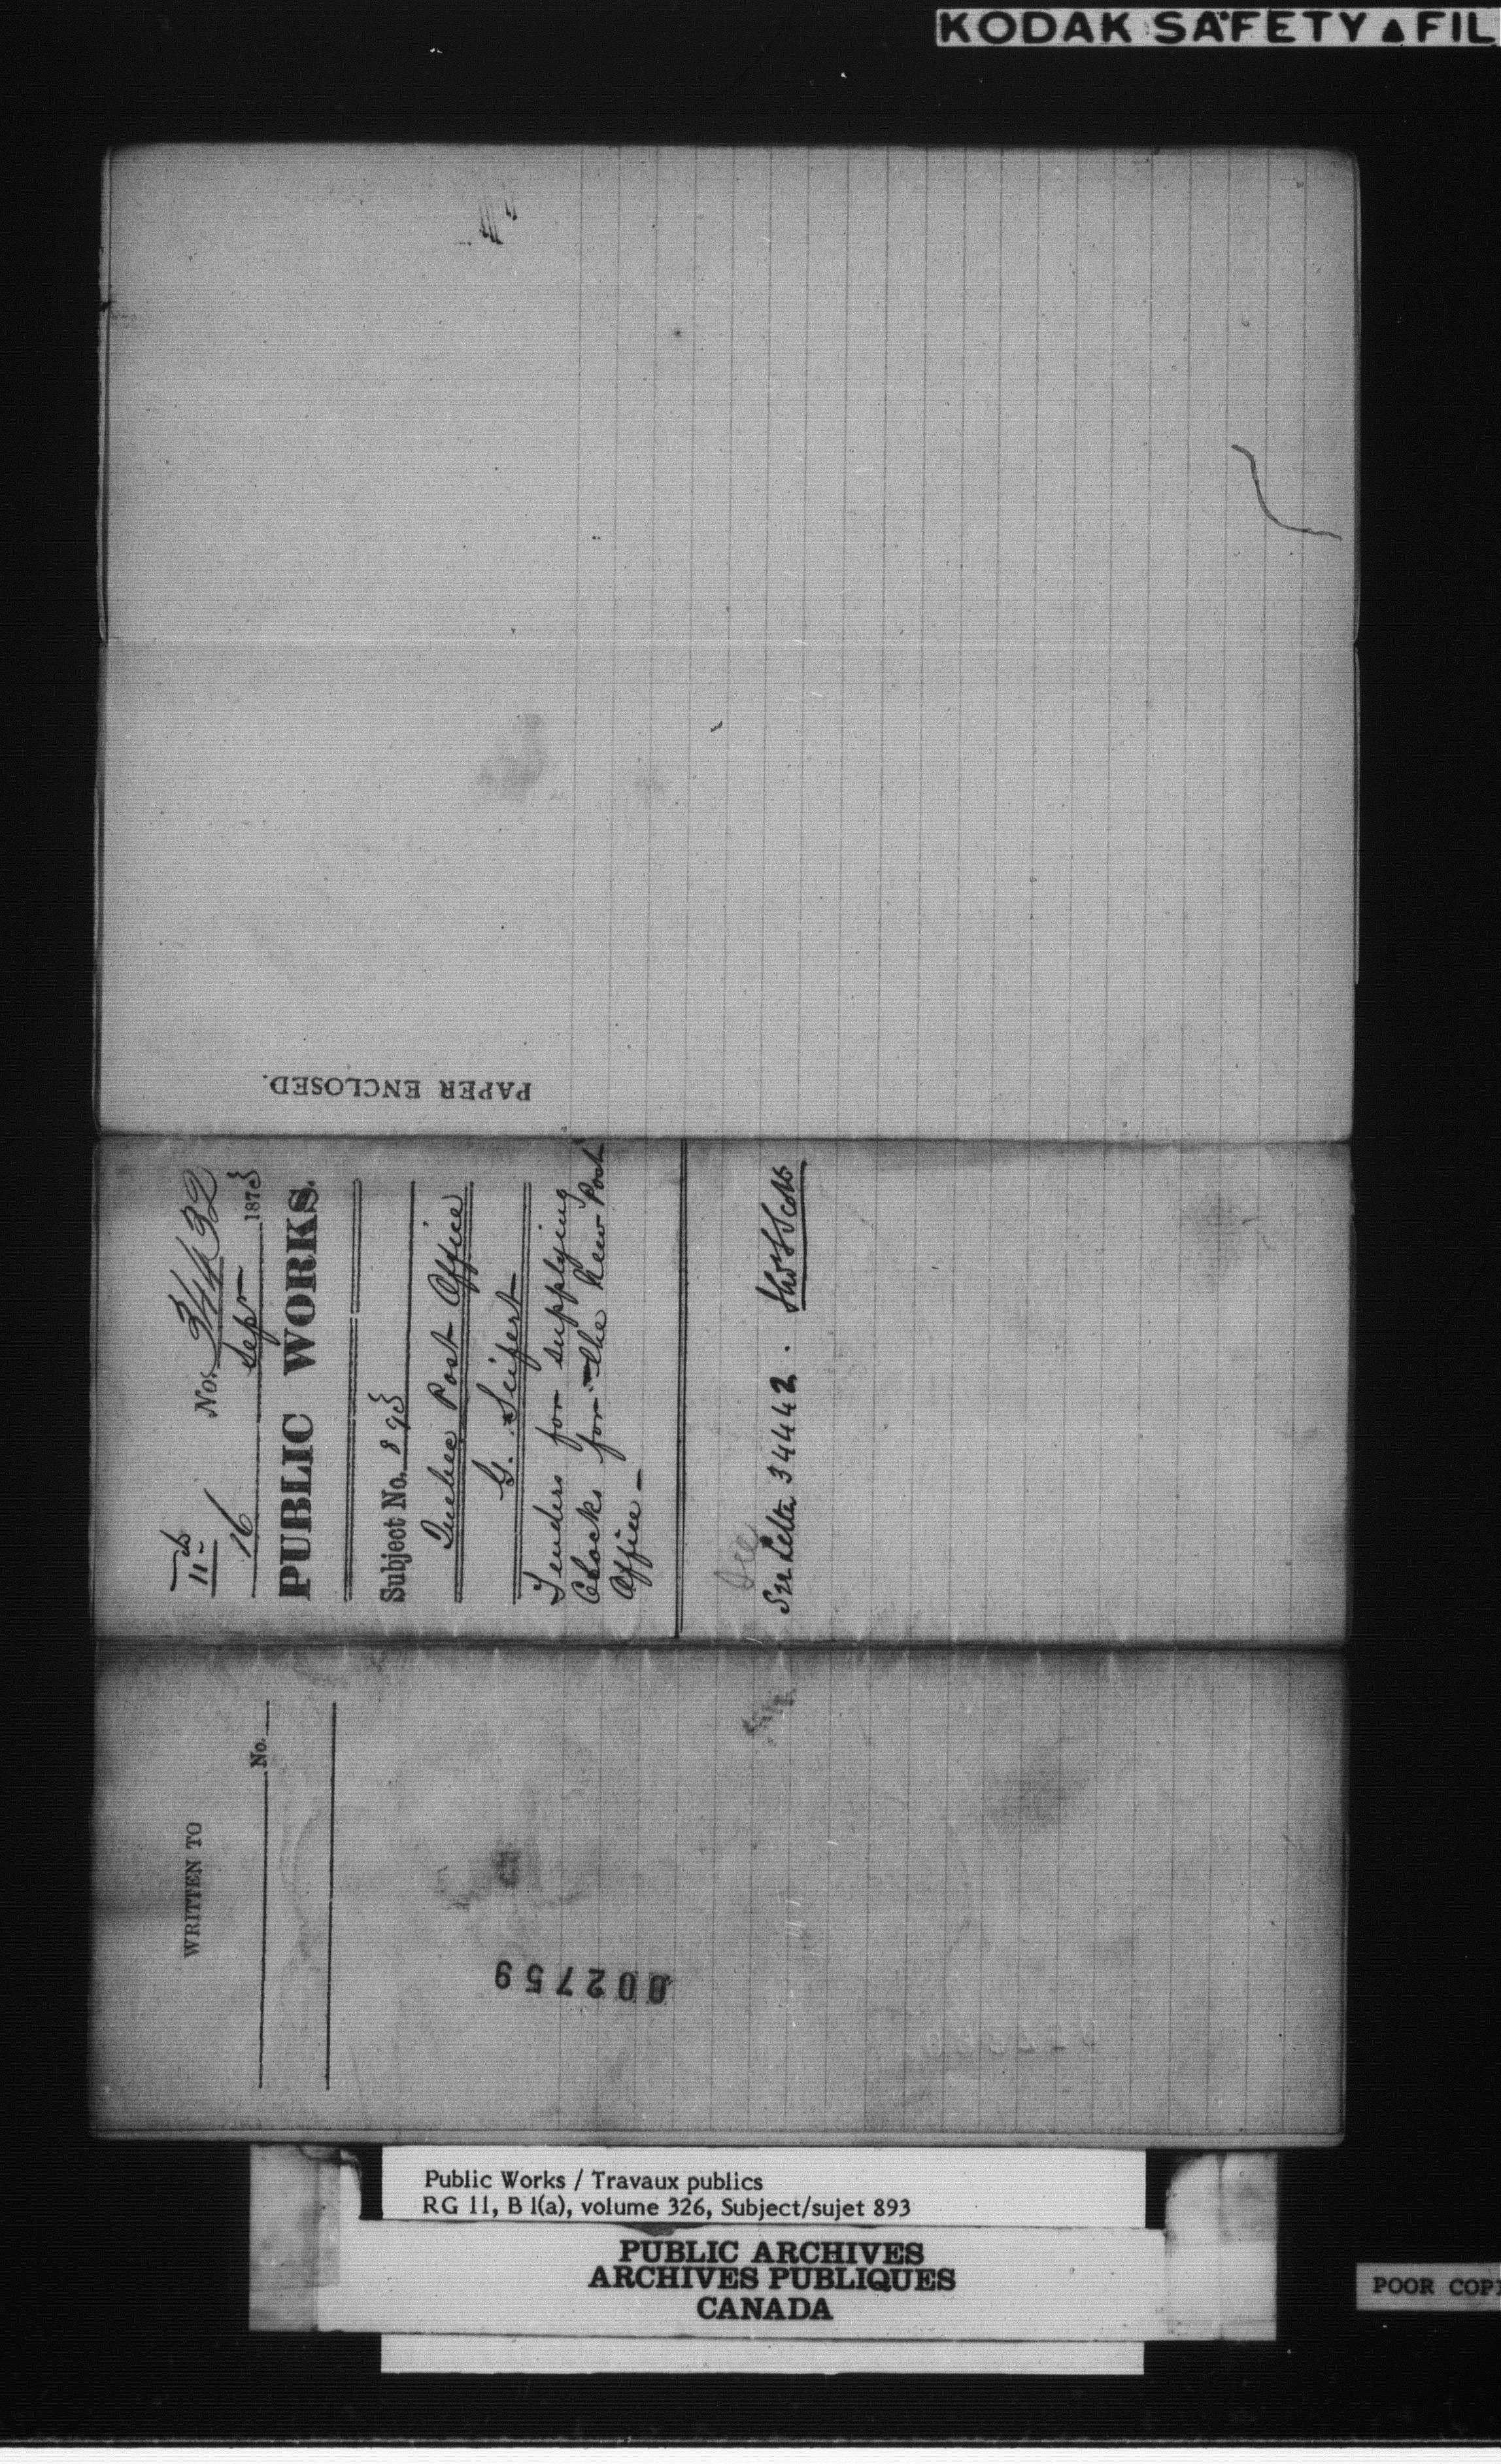 KODAK SAFETY ▲ FIL
PAPER ENCLOSED.
11
No. 34432
16 Sepr 1873
PUBLIC WORKS.
Subject No. 893
Quebec Post Office
G. Seifert
Tenders for supplying
Clocks for the new Post
Office —
See
See Letter 34442. Thos S Scott
WRITTEN TO
No.
002759
Public Works / Travaux publics
RG 11, B 1(a), volume 326, Subject/sujet 893
PUBLIC ARCHIVES
ARCHIVES PUBLIQUES
CANADA
POOR COPI